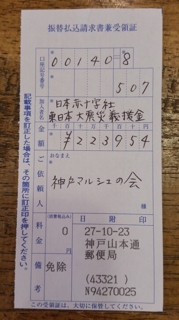 振替払込請求書兼受領証
00140=8
507
日本赤十字社
東日本大震災義援金
千百十万千百十円
¥223954
おなまえ
神戸マルシェの会
様
口座記号番号
加入者名
金額
ご依頼人
料金
(消費税込み)
0
円
備考
免除
日附印
27-10-23
神戸山本通
郵便局
(43321)
N94270025
記載事項を訂正した場合は、その箇所に訂正印を押してください。
この受領証は、大切に保管してください。